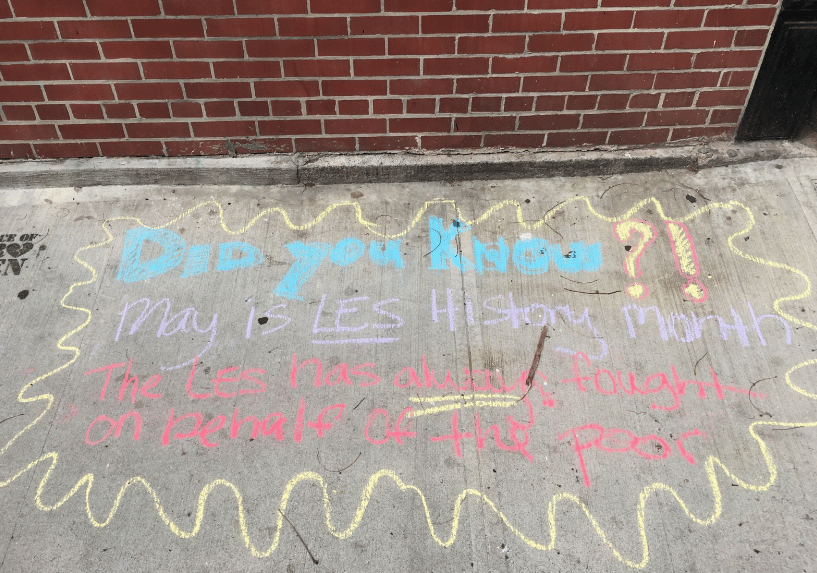 DID you KNOW?!
May is LES History Month
The LES has always fought
on behalf of the poor
CE OF
EN